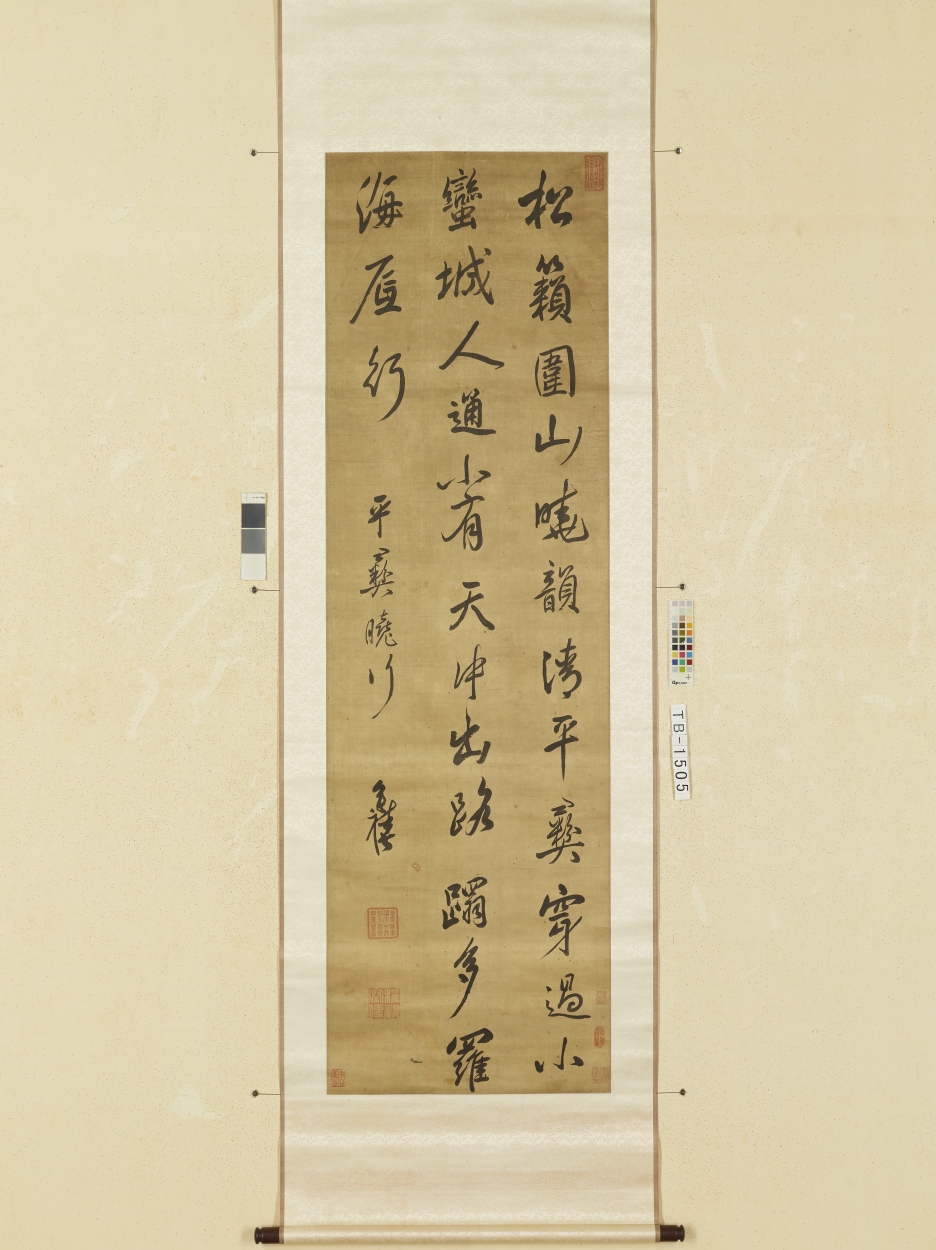 松籟圍山曉韻清平彝穿過小
蠻城人通小有天冲出路躅多羅
海行
平彝曉行
TB-1505